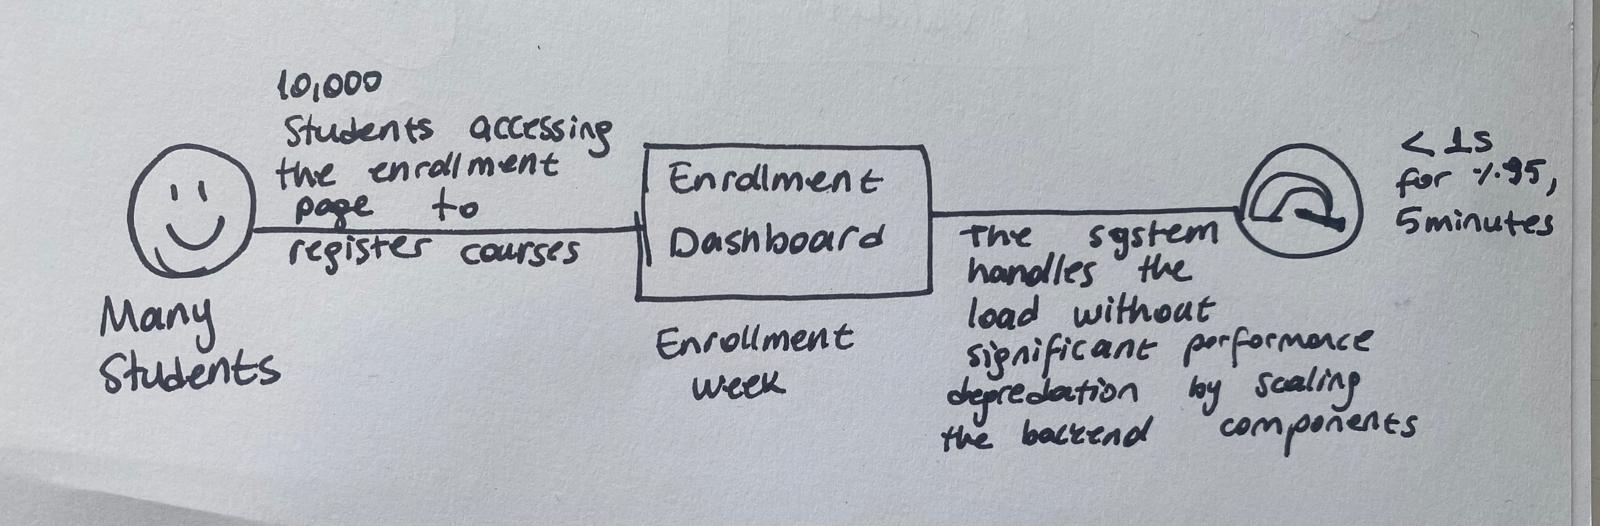 10,000
Students accessing
the enrollment
page to
register courses
Many
Students
Enrollment
Dashboard
Enrollment
week
The system
handles the
load without
significant performance
depredation by scaling
the backend components
< 1s
for %95,
5minutes